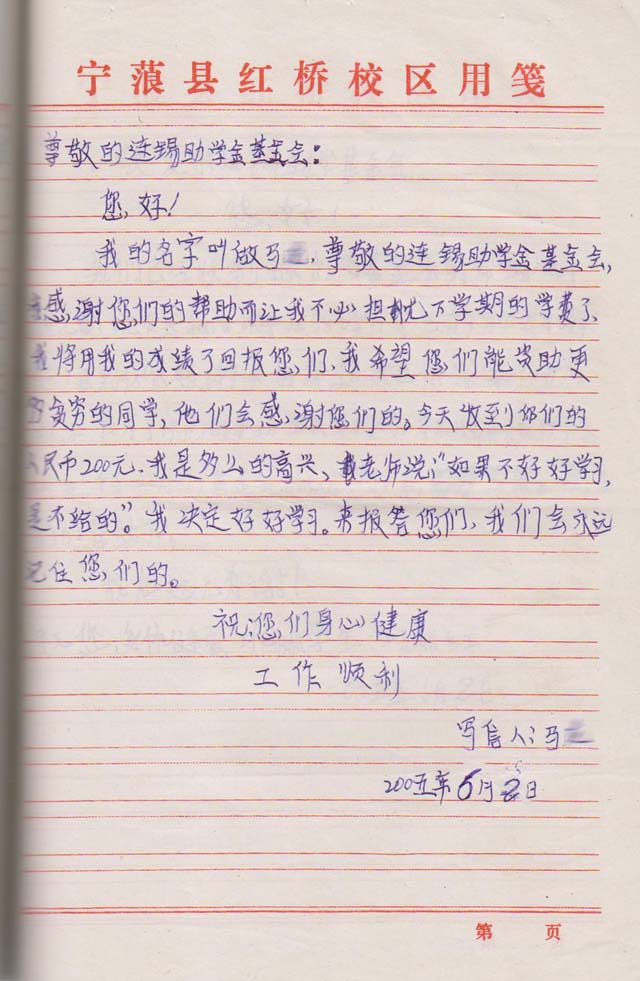 宁蒗县红桥校区用笺
尊敬的连锡助学金基金会:
您,好!
我的名字叫做马 ,尊敬的连锡助学金基金会,
感,谢您们的帮助而让我不必担忧下学期的学费了、
我将用我的成绩了回报您们,我希望您们能资助更
贫穷的同学,他们会感,谢您们的。今天收到你们的
人民币200元、我是多么的高兴、 老师说:“如果不好好学习,
是不给的”。我决定好好学习。来报答您们,我们会永远
记住您,们的。
祝:您们身心健康
工作顺利
写信人:马
2005年6月2日
第 页